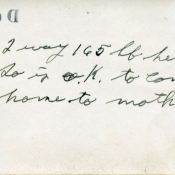 I way 165 lb he
so is O.K. to com
home to moth